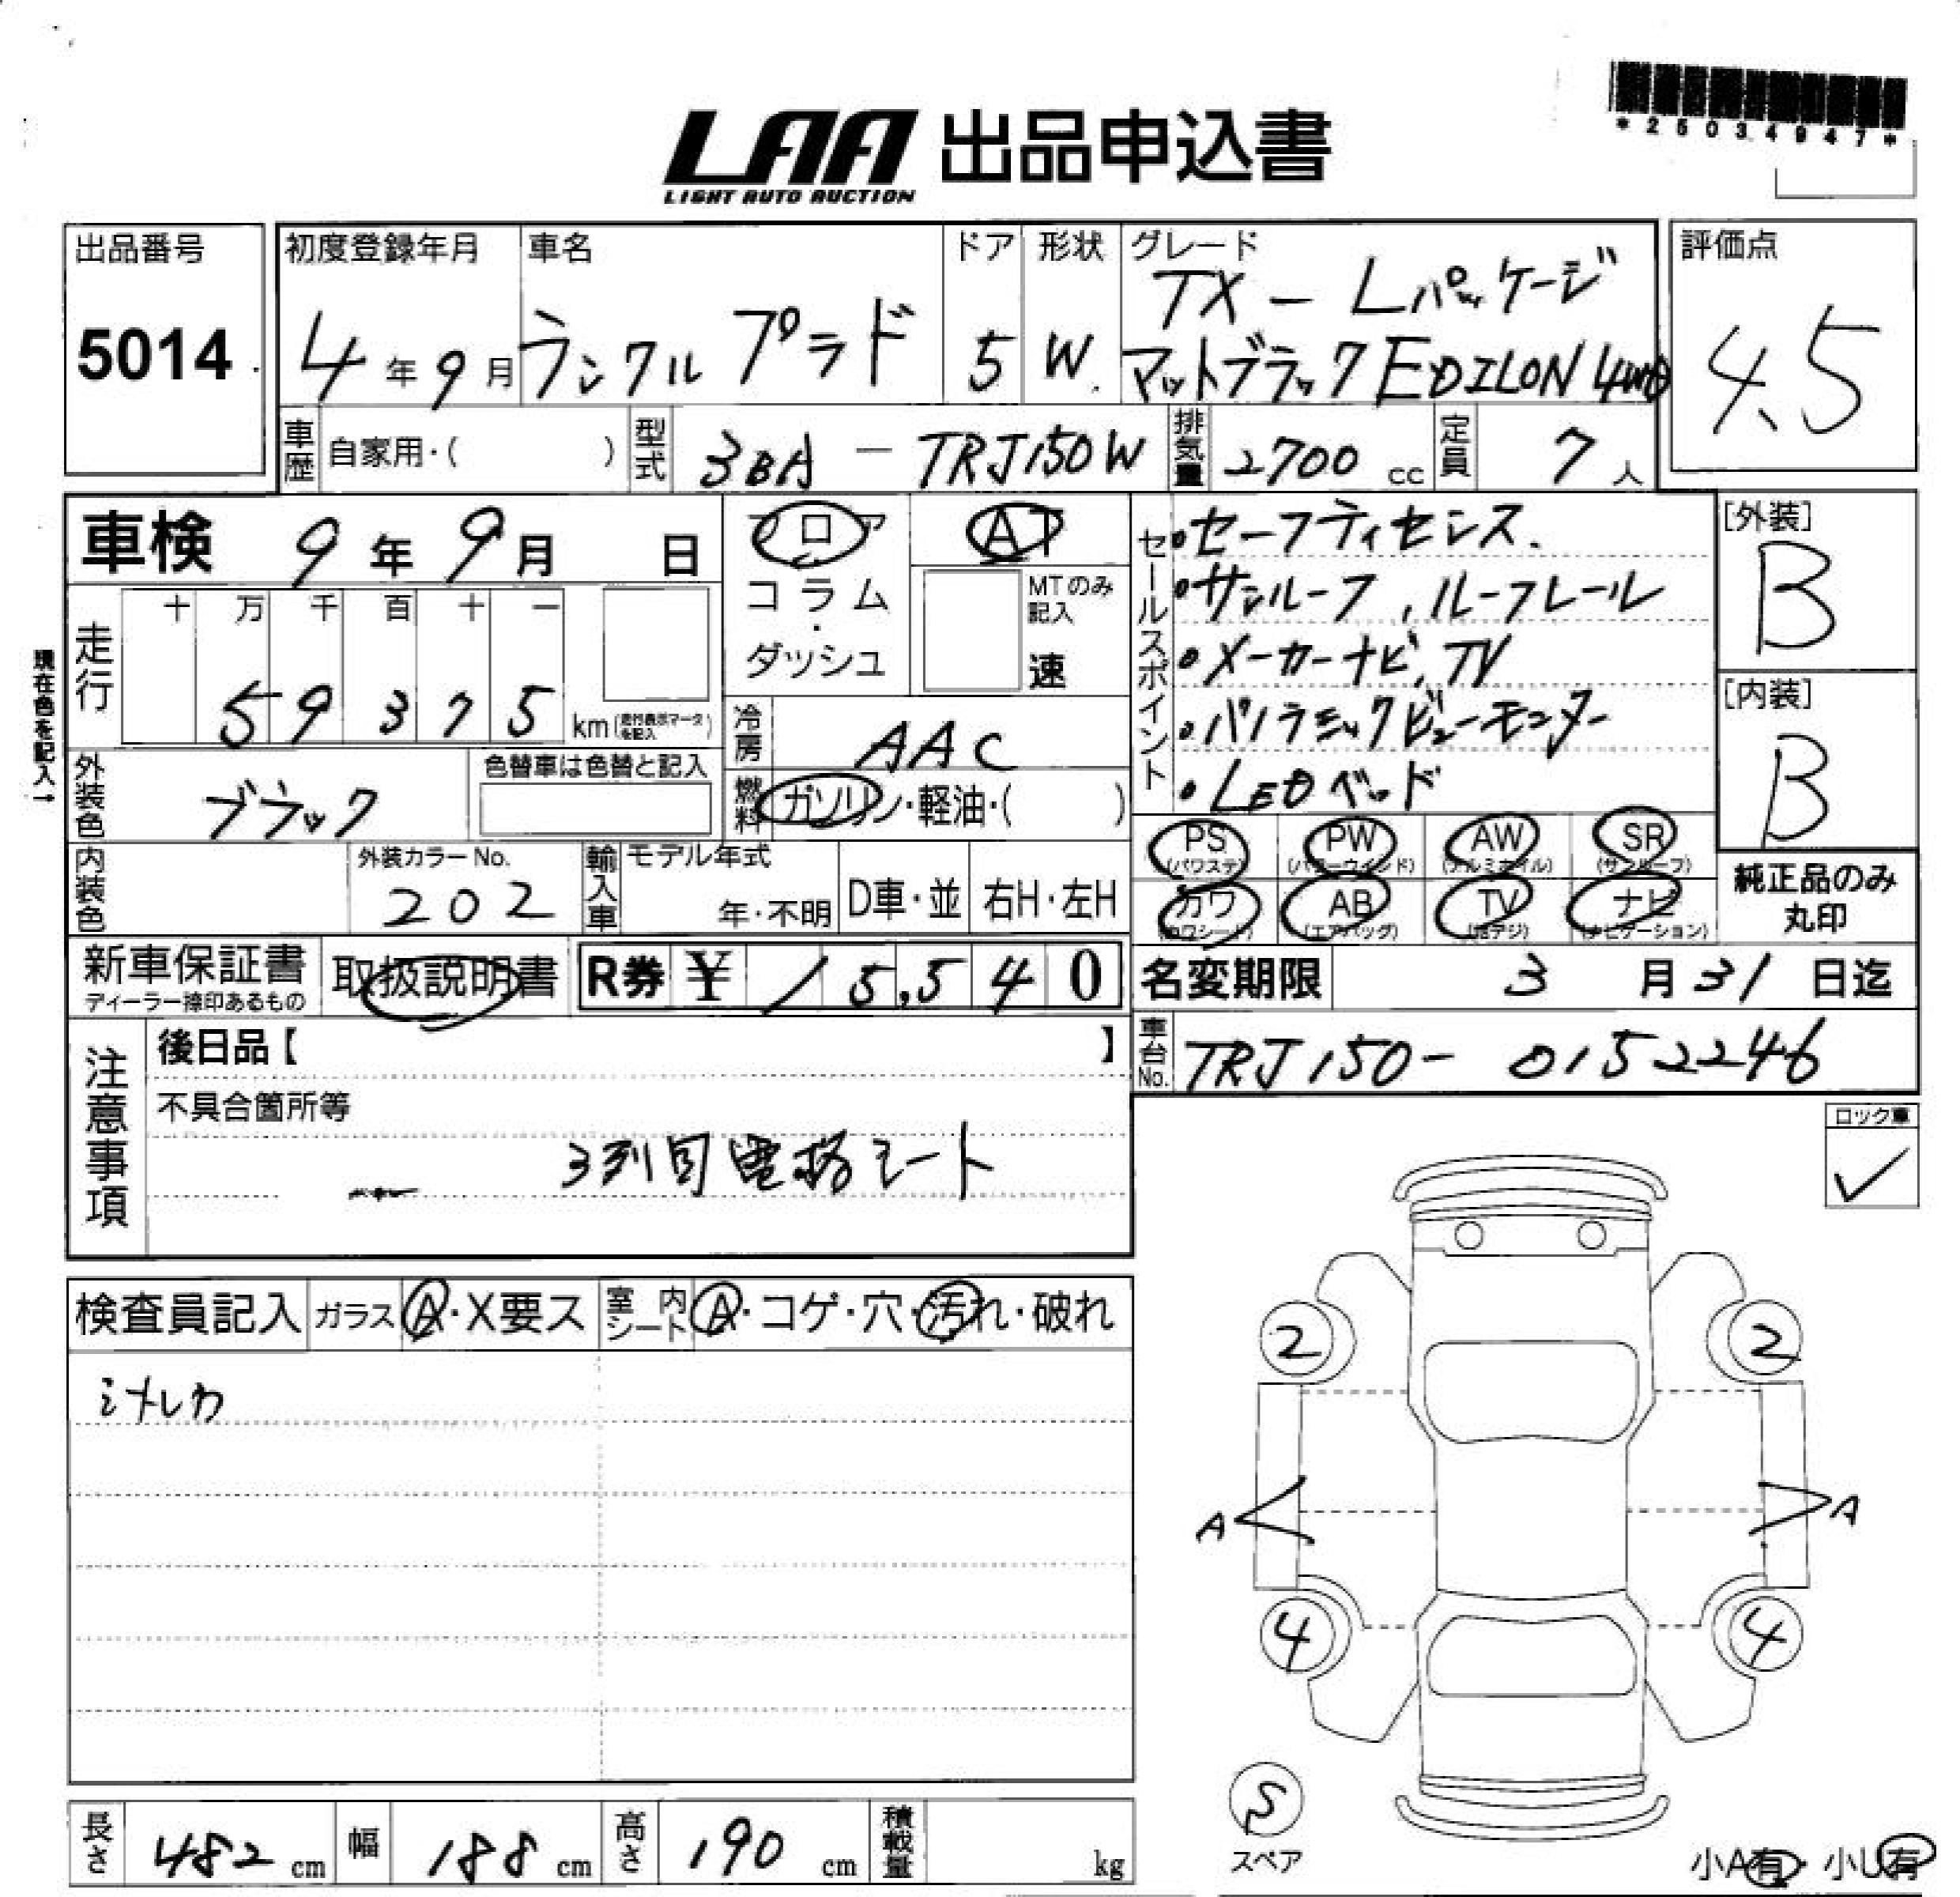 *25034947*
LAA 出品申込書
LIGHT AUTO AUCTION
出品番号
5014
初度登録年月
4年9月
車名
ランクル プラド
ドア
5
形状
W
グレード
TX-Lパッケージ
マットブラック EDILON 4WD
評価点
4.5
車歴 自家用・( )
型式 3BA-TRJ150W
排気量 2700 cc
定員 7人
車検 9年9月 日
フロア
コラム・ダッシュ
AT
MTのみ記入
速
セールスポイント
・セーフティセンス.
・サンルーフ, ルーフレール
・メーカーナビ, TV
・パノラミックビューモニター
・LEDヘッド
[外装]
B
[内装]
B
現在色を記入→
走行
十 万 千 百 十 一
5 9 3 7 5 km(走行表示マークを記入)
冷房 AAC
外装色 ブラック
色替車は色替と記入
燃料 ガソリン・軽油・( )
PS (パワステ) PW (パワーウインド) AW (アルミホイル) SR (サンルーフ)
カワ (カワシート) AB (エアバッグ) TV (地デジ) ナビ (ナビゲーション)
純正品のみ丸印
内装色
外装カラーNo.
202
輸入車
モデル年式
年・不明
D車・並
右H・左H
新車保証書
ディーラー捺印あるもの
取扱説明書
R券 ¥ 15,540
名変期限 3月31日迄
車台No. TRJ150-0152246
注意事項
後日品【 】
不具合箇所等
3列目電格シート
ロック車
✓
検査員記入
ガラス A・X要ス
室内シート A・コゲ・穴・汚れ・破れ
シナレカ
2 2
A A
4 4
S
スペア
長さ 482 cm
幅 188 cm
高さ 190 cm
積載量 kg
小A有・小U有